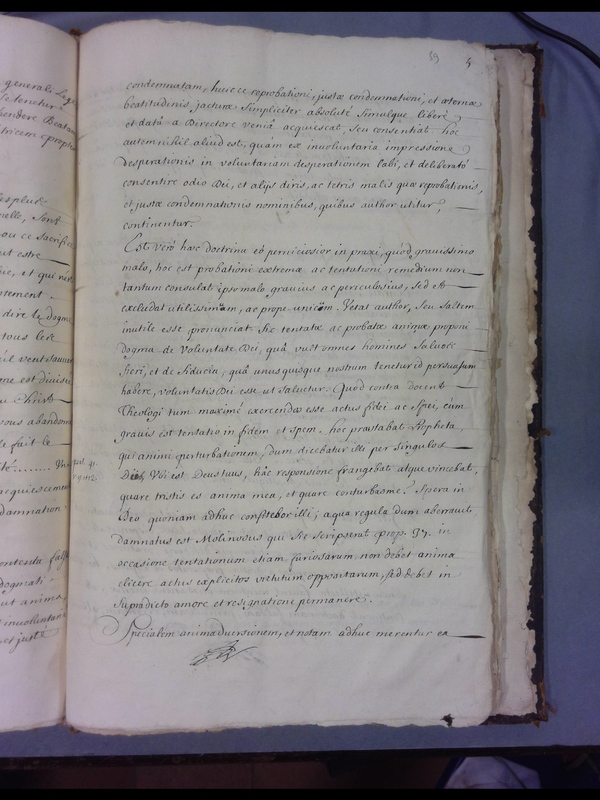 generali lege
se tenetur
hendere Beatam
tricem prophe
esplus
nelle, sent
ou ce sacrifice
ut estre
ue, et qui n'est
tement
dire le dogme
tous les
'il veut sauver
me est divisé
u Christ
vous abandonne
le fait le
té........ In
acquiescement
damnation
contenta fals
dogmati
ut anima
involuntari
et justa
59
condemnatam, huicce reprobationi, justæ condemnationi, et æternæ
beatitudinis jacturæ simpliciter absolutè simulque liberè
et datâ a Directore veniâ acquiescat, seu consentiat hoc
autem nihil aliud est, quam ex involuntaria impressione
desperationis in voluntariam desperationem labi, et deliberatò
consentire odio Dei, et alijs diris, ac tetris malis quæ reprobationis,
et justæ condemnationis nominibus, quibus author utitur,
continentur.
Est verò hæc doctrina eò perniciosior in praxi, quòd gravissimo
malo, hoc est probationi extremæ, ac tentationi remedium non
tantum consulat ipso malo gravius ac periculosius, sed et
excludat utilissimum, ac prope unicum. Vetat author, seu saltem
inutile esse pronunciat sic tentatæ ac probatæ animæ proponi
dogma de voluntate Dei, quâ vult omnes homines salvos
fieri, et de fiducia, quâ unusquisque nostrum tenetur id persuasum
habere, voluntatis Dei esse ut salvetur. Quod contra docent
Theologi tum maximè exercendos esse actus fidei ac spei, cùm
gravis est tentatio in fidem et spem. hoc præstabat Propheta
qui animi perturbationem, dum diceba[n]t illi per singulos
Dies, Vbi est Deus tuus, hâc responsione frangebat atque vincebat,
quare tristis es anima mea, et quare conturbas me? Spera in
Deo quoniam adhuc confitebor illi; a qua regula dum aberravit
damnatus est Molinosus qui sic scripserat prop. 37. in
occasione tentationum etiam furiosarum, non debet anima
elicere actus explicitos virtutum oppositarum, sed debet in
supradicto amore et resignatione permanere.
Specialem animadversionem, et notam adhuc merentur ea